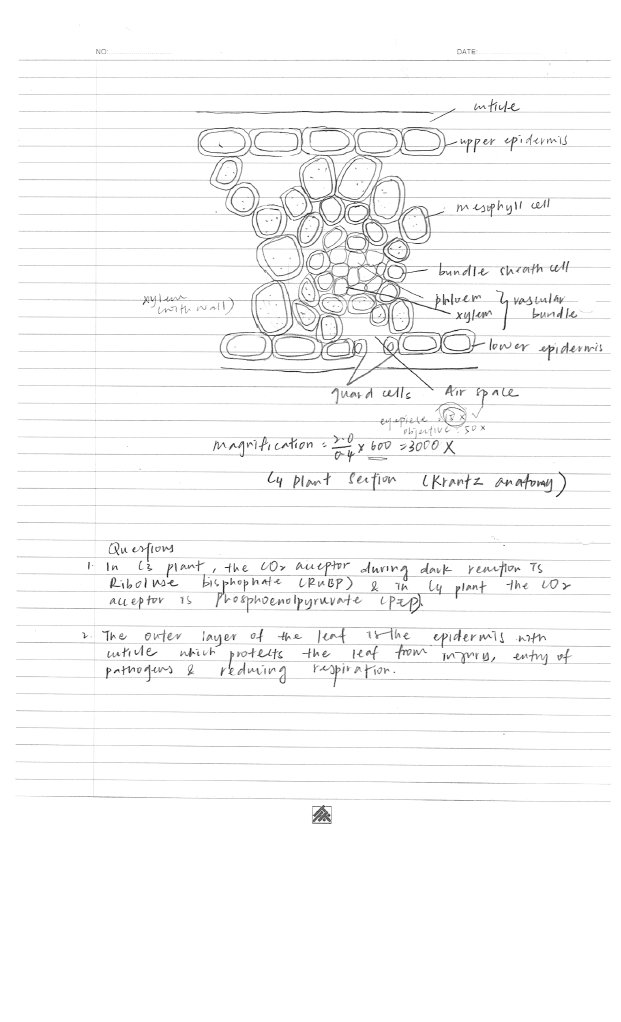 NO:
DATE:
cuticle
upper epidermis
mesophyll cell
bundle sheath cell
phloem
xylem
vascular
bundle
xylem
(with wall)
lower epidermis
guard cells
Air space
eyepiece 15 X
objective = 50 X
Magnification = 2.0/0.4 x 600 = 3000 X
C4 plant section (Krantz anatomy)
Questions
1. In C3 plant, the CO2 acceptor during dark reaction is
Ribolose bisphophate (RuBP) & in C4 plant the CO2
acceptor is Phosphoenolpyruvate (PEP).
2. The outer layer of the leaf is the epidermis with
cuticle which protects the leaf from injury, entry of
pathogens & reducing respiration.